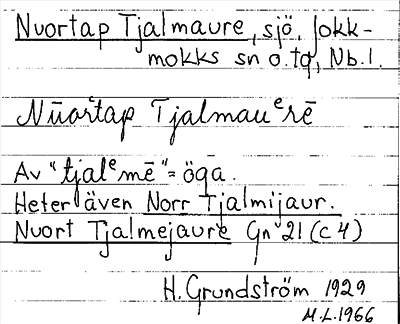 Nuortap Tjalmaure, sjö, Jokk-
mokks sn o. tg, Nb. l.
Nūorᵉtap Tjalmauᵉrē
Av "tjalᵉmē" = öga.
Heter även Norr Tjalmijaur.
Nuort Tjalmejaure Gnᵛ 21 (c 4)
H. Grundström 1929
M.L. 1966